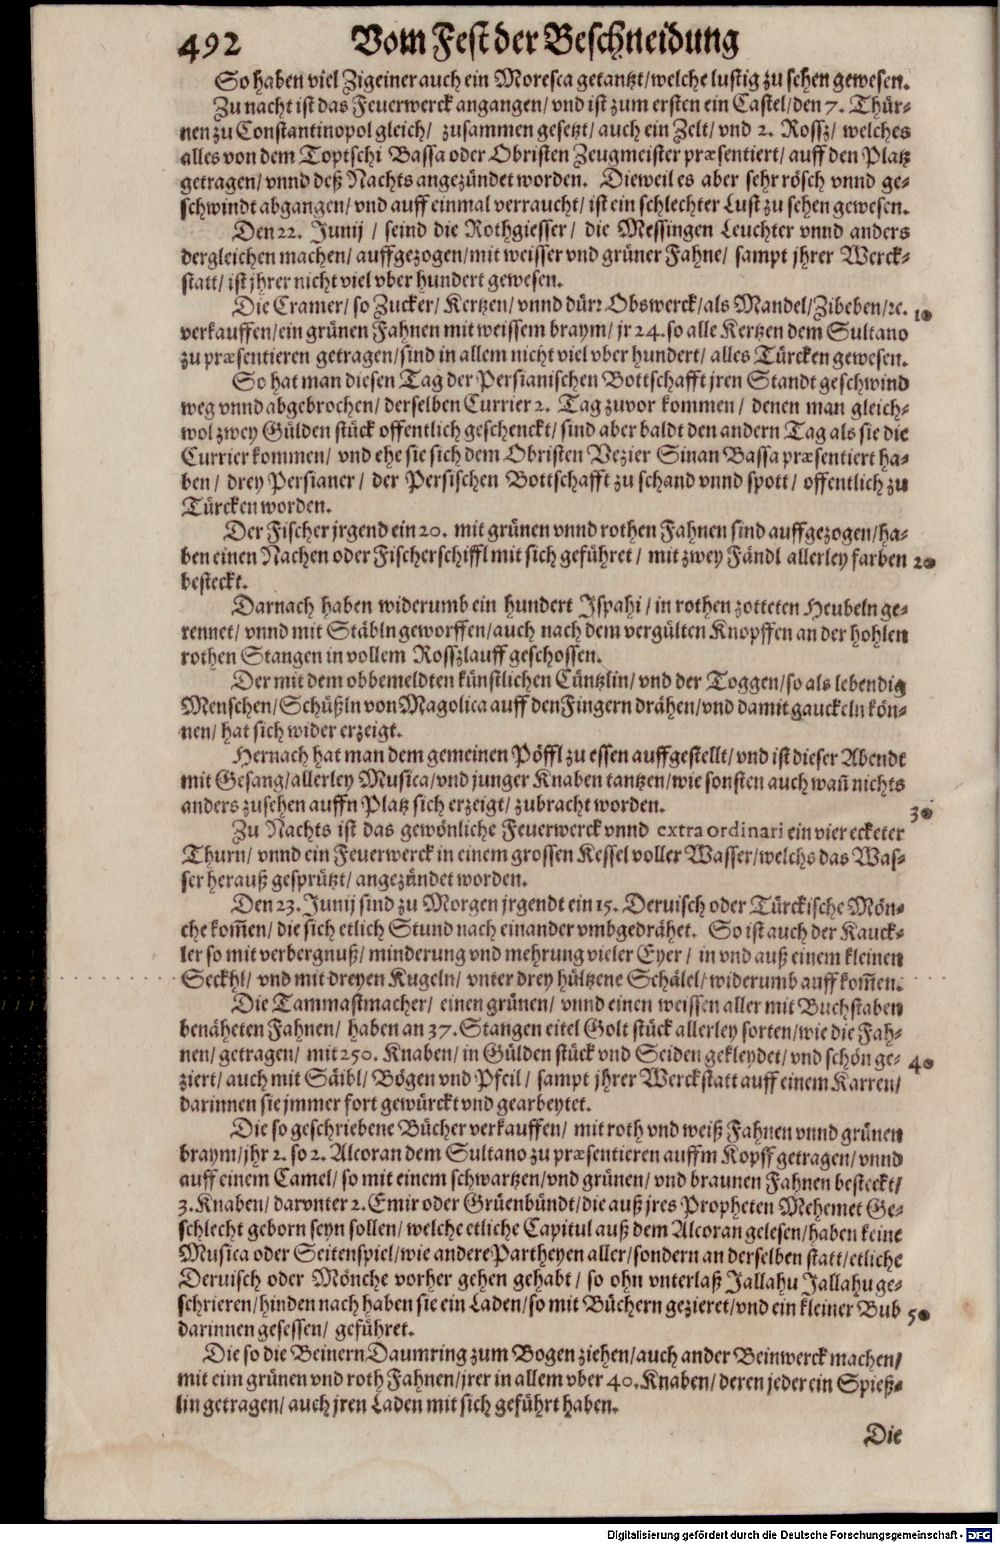 492 Vom Fest der Beschneidung
So haben viel Zigeiner auch ein Moresca getantzt/ welche lustig zu sehen gewesen.
Zu nacht ist das Feuerwerck angangen/ vnd ist zum ersten ein Castel/ den 7. Thür-
nen zu Constantinopol gleich/ zusammen gesetzt/ auch ein Zelt/ vnd 2. Rossz/ welches
alles von dem Toptschi Bassa oder Obristen Zeugmeister præsentiert/ auff den Platz
getragen/ vnnd deß Nachts angezündet worden. Dieweil es aber sehr rösch vnnd ge-
schwindt abgangen/ vnd auff einmal verraucht/ ist ein schlechter Lust zu sehen gewesen.
Den 22. Junij / seind die Rothgiesser/ die Messingen Leuchter vnnd anders
dergleichen machen/ auffgezogen/ mit weisser vnd grüner Fahne/ sampt jhrer Werck-
statt/ ist jhrer nicht viel vber hundert gewesen.
Die Cramer/ so Zucker/ Kertzen/ vnnd dürr Obswerck/ als Mandel/ Zibeben/ ꝛc. 10
verkauffen/ ein grünen Fahnen mit weissem braym/ jr 24. so alle Kertzen dem Sultano
zu præsentieren getragen/ sind in allem nicht viel vber hundert/ alles Türcken gewesen.
So hat man diesen Tag der Persianischen Bottschafft jren Standt geschwind
weg vnnd abgebrochen/ derselben Currier 2. Tag zuvor kommen/ denen man gleich-
wol zwey Gülden stück offentlich geschenckt/ sind aber baldt den andern Tag als sie die
Currier kommen/ vnd ehe sie sich dem Obristen Vezier Sinan Bassa præsentiert ha-
ben/ drey Persianer/ der Persischen Bottschafft zu schand vnnd spott/ offentlich zu
Türcken worden.
Der Fischer jrgend ein 20. mit grünen vnnd rothen Fahnen sind auffgezogen/ ha-
ben einen Nachen oder Fischerschiffl mit sich geführet/ mit zwey Fändl allerley farben 20
besteckt.
Darnach haben widerumb ein hundert Jspahi/ in rothen zotteten Heubeln ge-
rennet/ vnnd mit Stäbln geworffen/ auch nach dem vergülten Knopffen an der hohlen
rothen Stangen in vollem Rosszlauff geschossen.
Der mit dem obbemeldten künstlichen Cüntzlin/ vnd der Toggen/ so als lebendig
Menschen/ Schüßln von Magolica auff den Fingern drähen/ vnd damit gauckeln kön-
nen/ hat sich wider erzeigt.
Hernach hat man dem gemeinen Pöffl zu essen auffgestellt/ vnd ist dieser Abendt
mit Gesang/ allerley Musica/ vnd junger Knaben tantzen/ wie sonsten auch wañ nichts
anders zusehen auffn Platz sich erzeigt/ zubracht worden.
30
Zu Nachts ist das gewönliche Feuerwerck vnnd extraordinari ein viereckter
Thurn/ vnnd ein Feuerwerck in einem grossen Kessel voller Wasser/ welchs das Was-
ser herauß gesprützt/ angezündet worden.
Den 23. Junij sind zu Morgen jrgendt ein 15. Deruisch oder Türckische Mön-
che kom̃en/ die sich etlich Stund nach einander vmbgedrähet. So ist auch der Kauck-
ler so mit verbergnuß/ minderung vnd mehrung vieler Eyer/ in vnd auß einem kleinen
Seckhl/ vnd mit dreyen Kugeln/ vnter drey hültzene Schälel/ widerumb auff kom̃en.
Die Tammastmacher/ einen grünen/ vnnd einen weissen aller mit Buchstaben
benäheten Fahnen/ haben an 37. Stangen eitel Golt stück allerley sorten/ wie die Fah-
nen/ getragen/ mit 250. Knaben/ in Gülden stück vnd Seiden gekleydet/ vnd schön ge- 40
ziert/ auch mit Säibl/ Bögen vnd Pfeil/ sampt jhrer Werckstatt auff einem Karren/
darinnen sie jmmer fort gewürckt vnd gearbeytet.
Die so geschriebene Bücher verkauffen/ mit roth vnd weiß Fahnen vnnd grünen
braym/ jhr 2. so 2. Alcoran dem Sultano zu præsentieren auffm Kopff getragen/ vnnd
auff einem Camel/ so mit einem schwartzen/ vnd grünen/ vnd braunen Fahnen besteckt/
3. Knaben/ darvnter 2. Emir oder Grüenbündt/ die auß jres Propheten Mehemet Ge-
schlecht geborn seyn sollen/ welche etliche Capitul auß dem Alcoran gelesen/ haben keine
Musica oder Seitenspiel/ wie andere Partheyen aller/ sondern an derselben statt/ etliche
Deruisch oder Mönche vorher gehen gehabt/ so ohn vnterlaß Jallahu Jallahu ge-
schrieren/ hinden nach haben sie ein Laden/ so mit Büchern gezieret/ vnd ein kleiner Bub 50
darinnen gesessen/ geführet.
Die so die Beinern Daumring zum Bogen ziehen/ auch ander Beinwerck machen/
mit eim grünen vnd roth Fahnen/ jrer in allem vber 40. Knaben/ deren jeder ein Spieß-
lin getragen/ auch jren Laden mit sich geführt haben.
Die
Digitalisierung gefördert durch die Deutsche Forschungsgemeinschaft - DFG